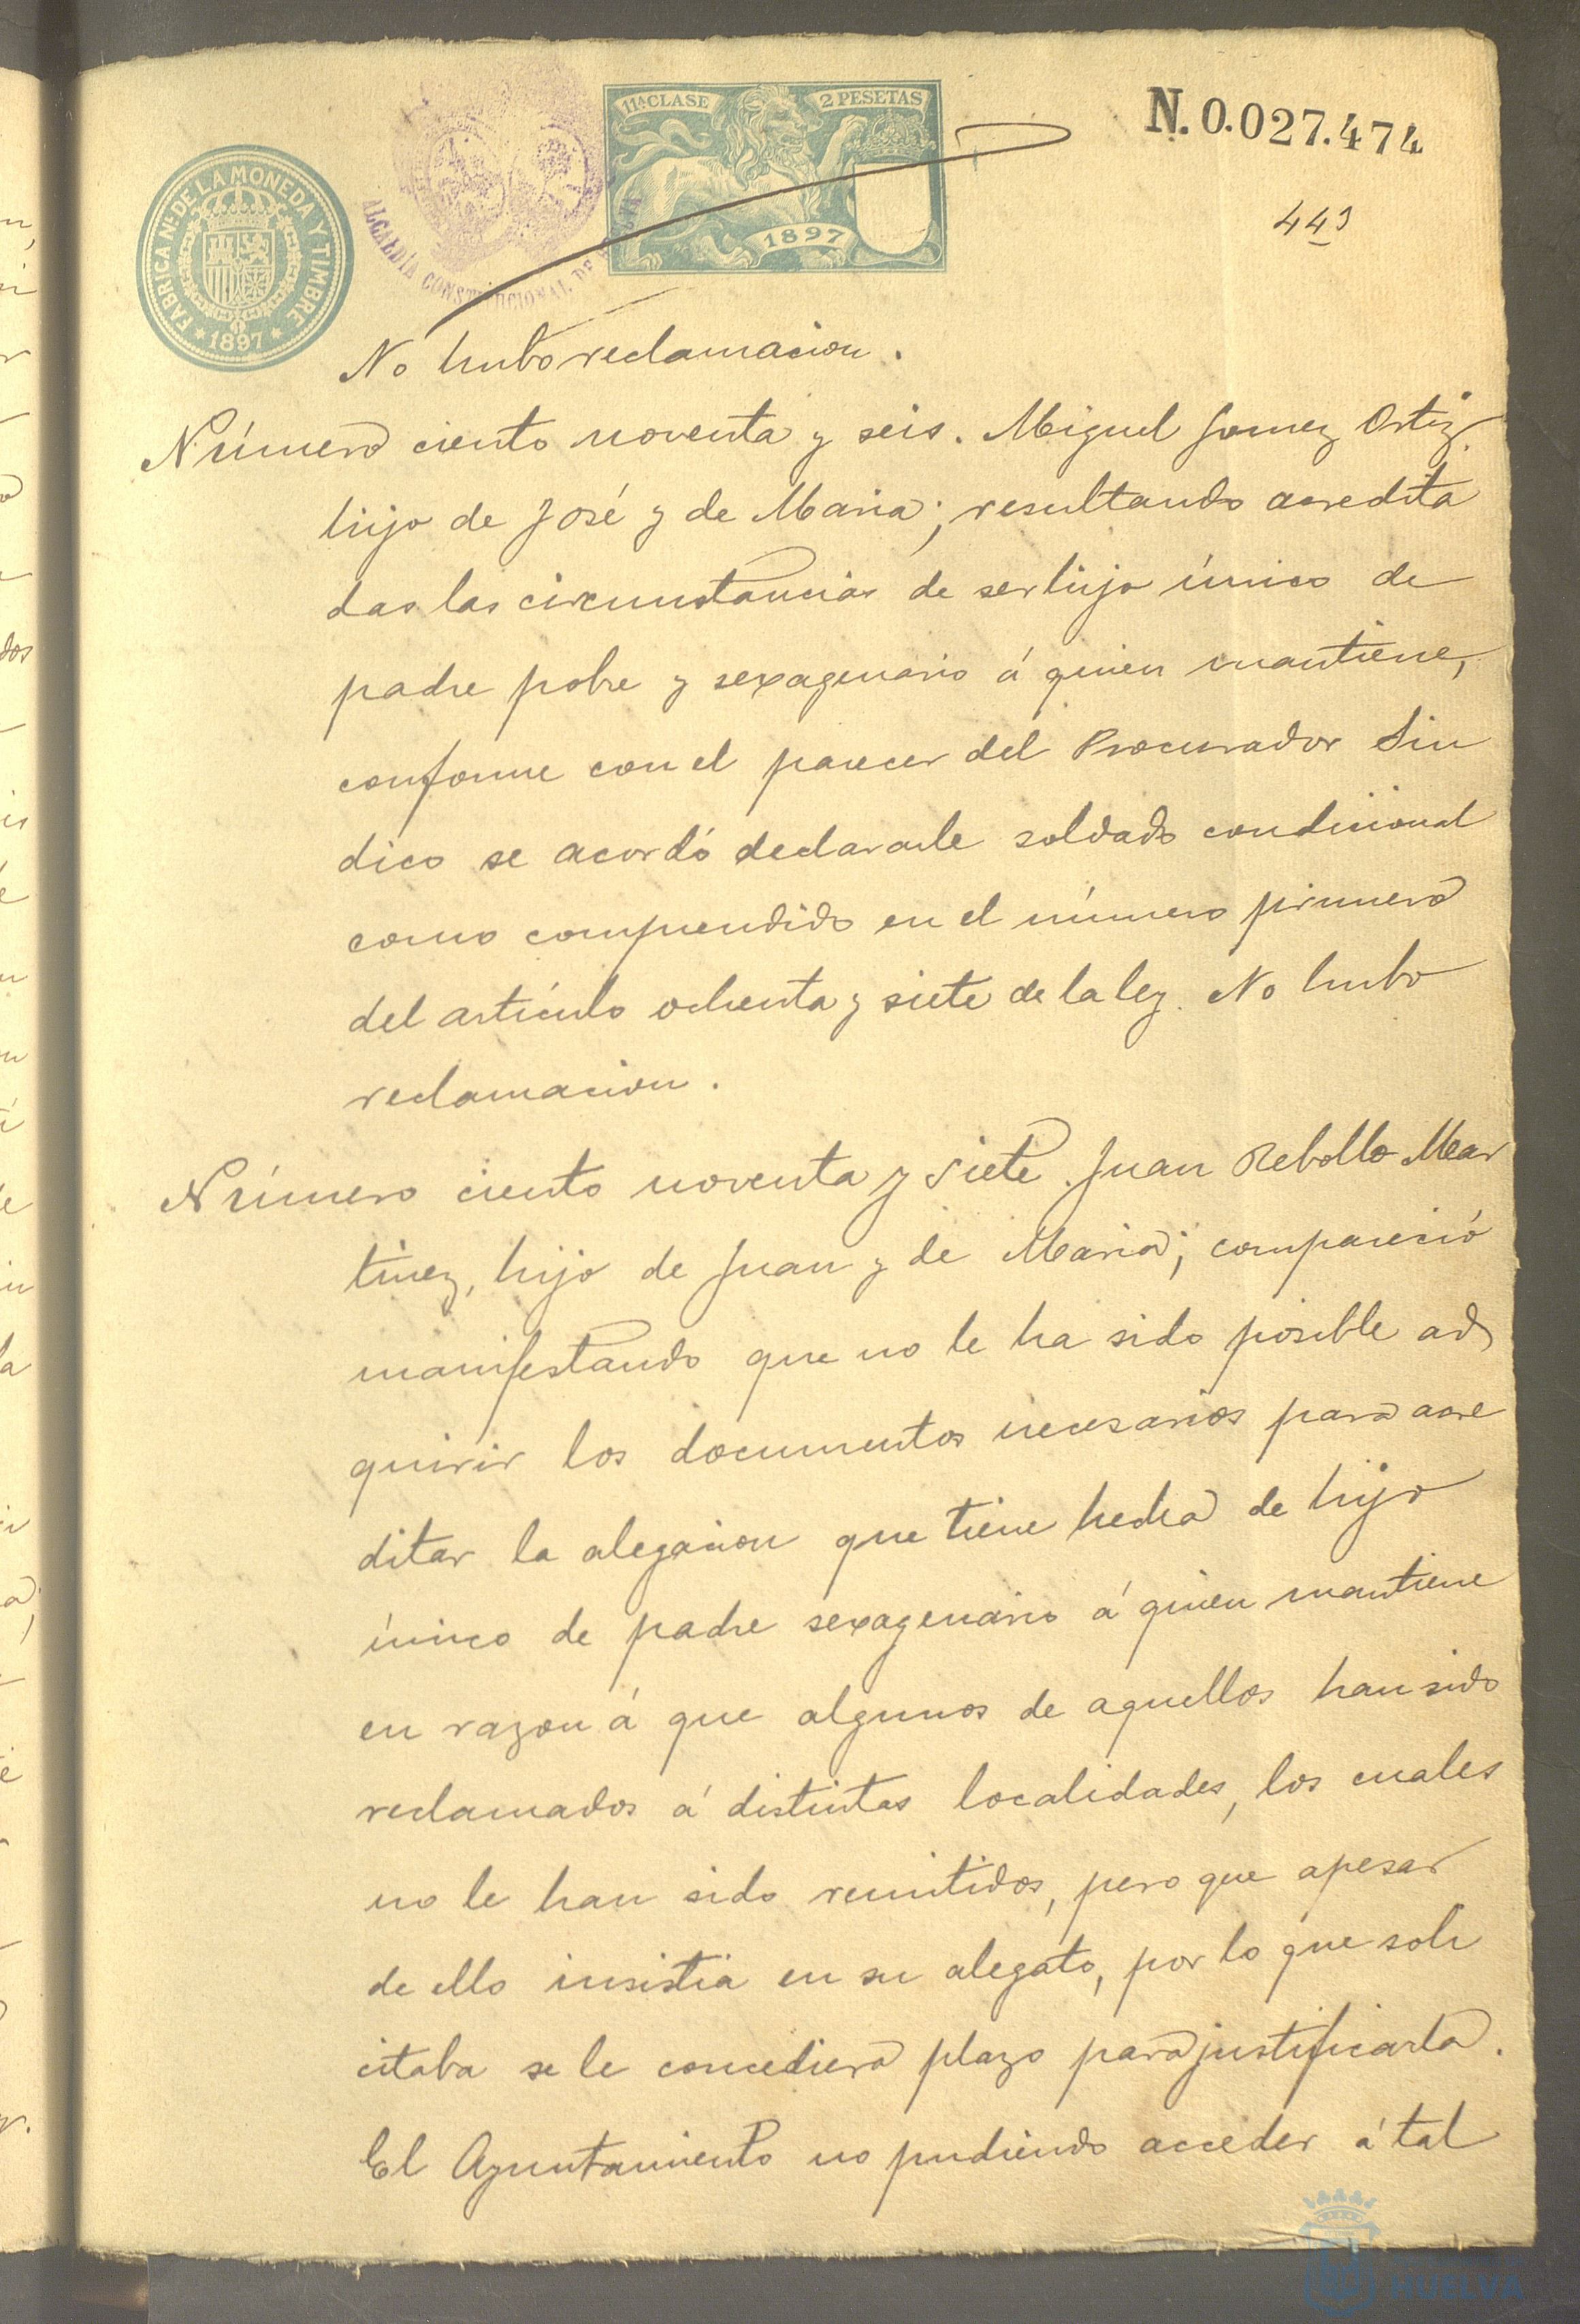 11ª CLASE 2 PESETAS
1897
N. 0.027.474
443
FABRICA Nl. DE LA MONEDA Y TIMBRE
* 1897 *
ALCALDIA CONSTITUCIONAL DE
No hubo reclamacion.
Número ciento noventa y seis. Miguel Gomez Ortiz
hijo de José y de Maria; resultando acredita
das las circunstancias de ser hijo único de
padre pobre y sexagenario á quien mantiene,
conforme con el parecer del Procurador Sin
dico se acordó declararle soldado condicional
como comprendido en el número primero
del artículo ochenta y siete de la ley. No hubo
reclamacion.
Número ciento noventa y siete. Juan Rebollo Mar
tinez, hijo de Juan y de Maria; compareció
manifestando que no le ha sido posible ad
quirir los documentos necesarios para acre
ditar la alegacion que tiene hecha de hijo
único de padre sexagenario á quien mantiene
en razon á que algunos de aquellos han sido
reclamados á distintas localidades, los cuales
no le han sido remitidos, pero que apesar
de ello insistia en su alegato, por lo que soli
citaba se le concediera plazo para justificarla.
El Ayuntamiento no pudiendo acceder á tal
HUELVA